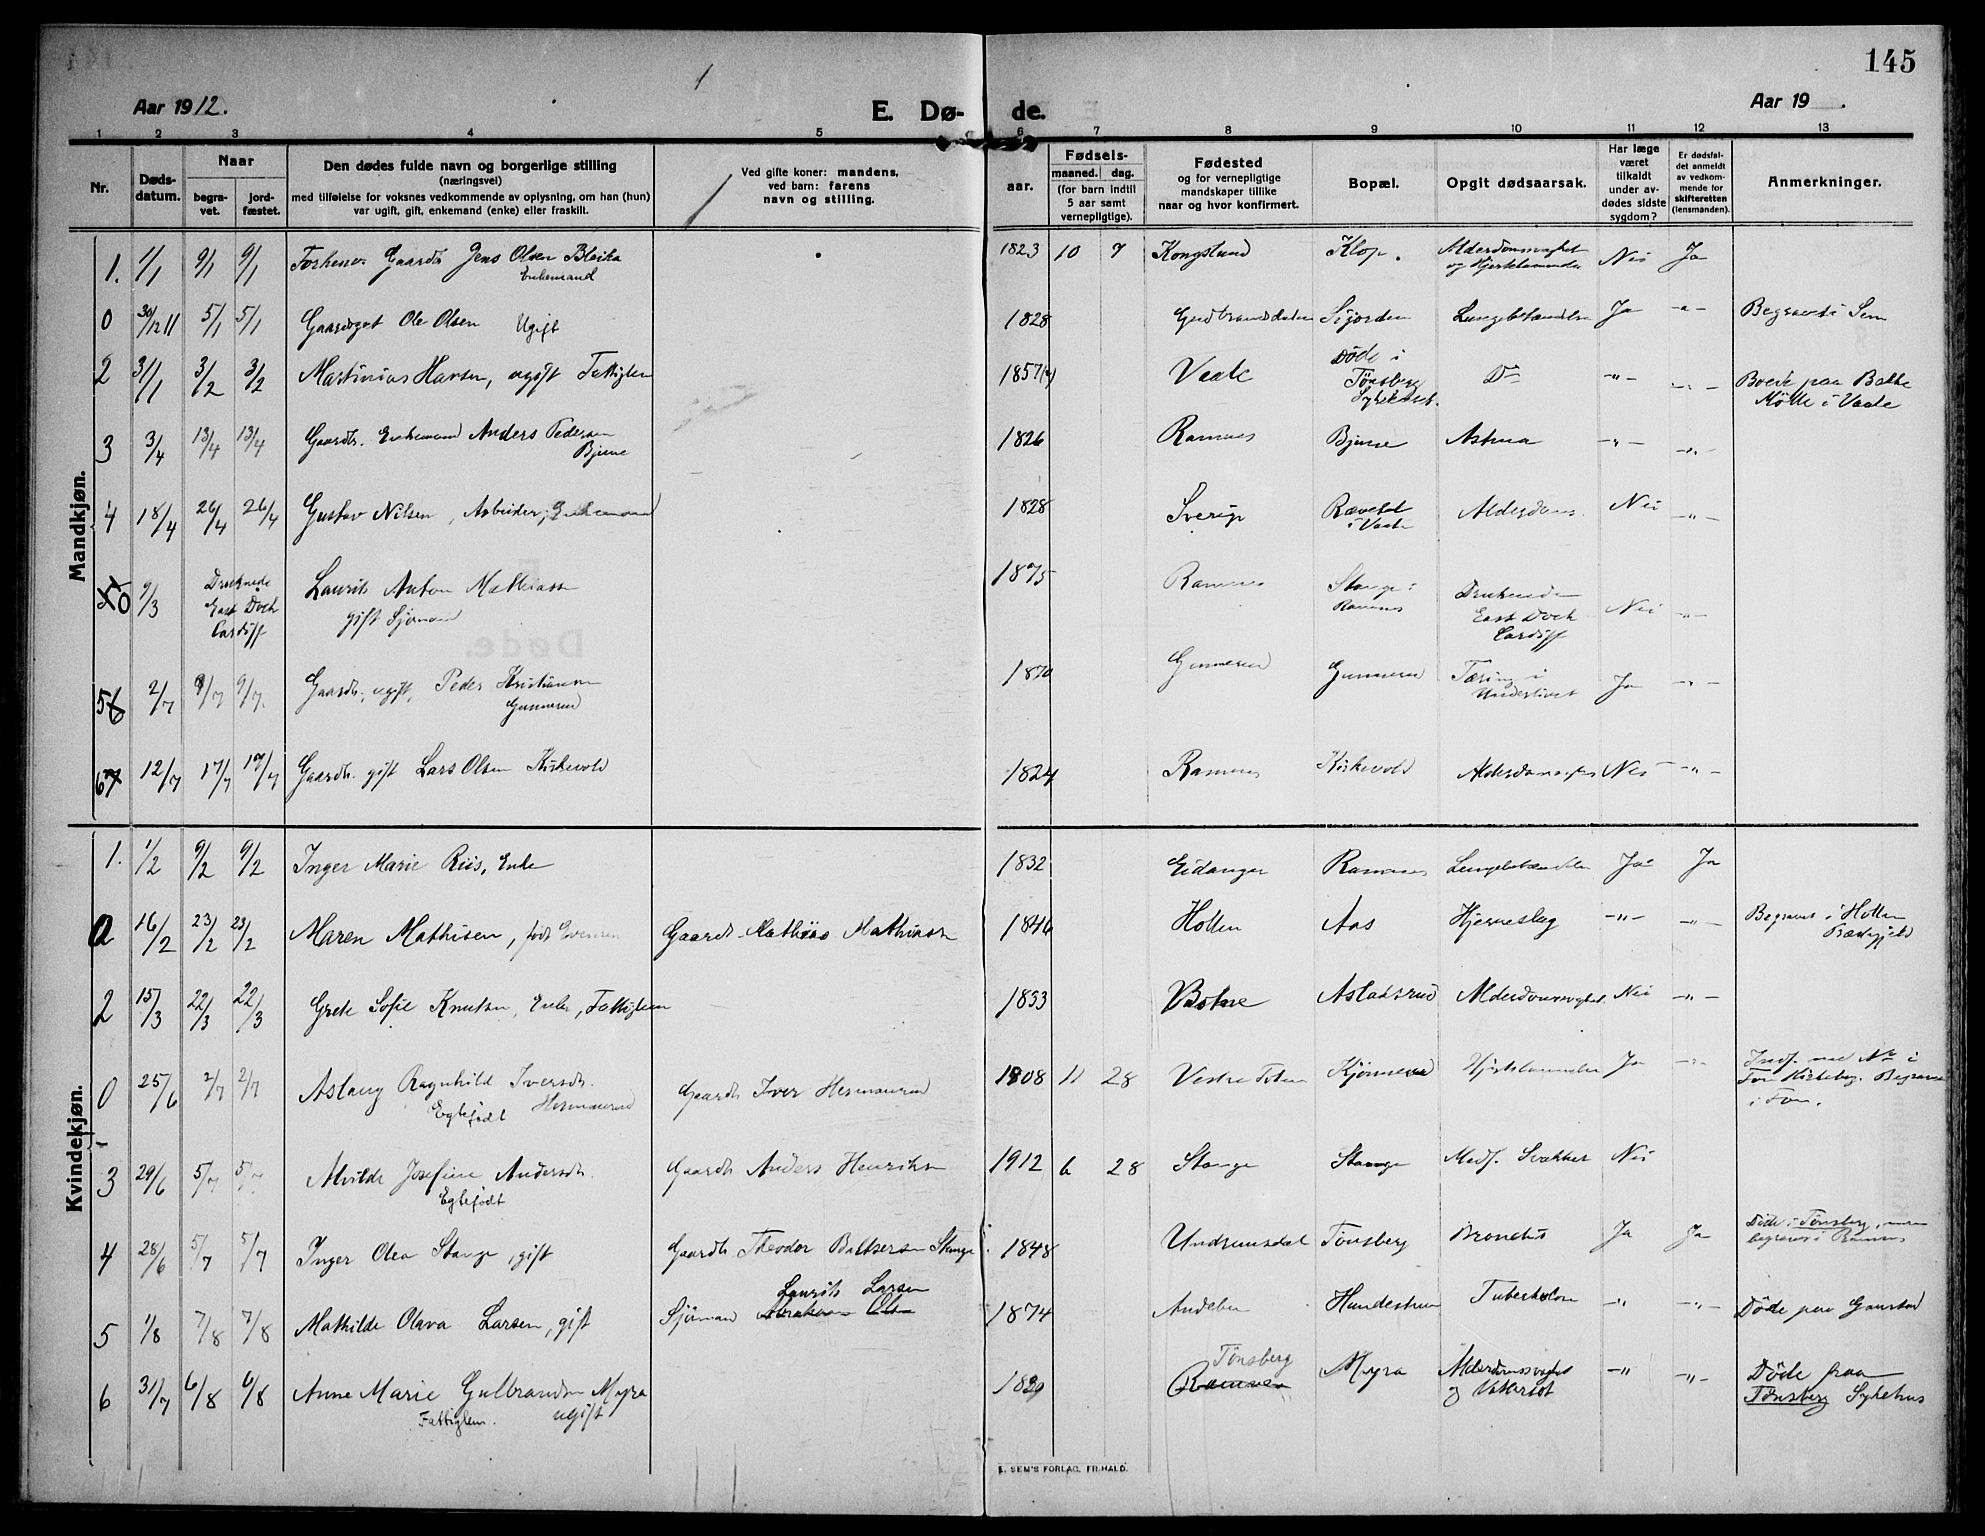 145
Aar 1912.
E. Dø- de.
Aar 19 .
1 2 3 4 5 6 7 8 9 10 11 12 13
Nr.
Døds-
datum.
Naar
begra-
vet.
jord-
fæstet.
Den dødes fulde navn og borgerlige stilling
(næringsvei)
med tilføielse for voksnes vedkommende av oplysning, om han (hun)
var ugift, gift, enkemand (enke) eller fraskilt.
Ved gifte koner: mandens,
ved barn: farens
navn og stilling.
aar.
Fødsels-
maaned. dag.
(for barn indtil
5 aar samt
vernepligtige).
Fødested
og for vernepligtige
mandskaper tillike
naar og hvor konfirmert.
Bopæl.
Opgit dødsaarsak.
Har læge
været
tilkaldt
under av-
dødes sidste
sygdom?
Er dødsfal-
det anmeldt
av vedkom-
mende for
skifteretten
(lensmanden).
Anmerkninger.
Mandkjøn.
1. 1/1 9/1 9/1 Gaardbr Jens Olsen Bleika 1823 10 7 Klop. Alderdomssvaghet Nei Ja
Enkemand
0 30/12 11 5/1 5/1 Ole Olsen Ugift 1828 Gudbrandsdalen Lungebetændelse Ja -"- Begravet i Sem
2 31/1 3/2 3/2 Martinius Hansen, ugift Fattiglem 1857(?) Vaale Døde i Do -"- -"- Boede paa Bakke
Tønsberg Mølle i Vaale
Sykehus.
3 3/4 13/4 13/4 Gaardbr. Enkemand Anders Pedersen 1826 Ramnes Bjune Astma -"- -"-
Bjune
4 18/4 26/4 26/4 Gustav Nilsen, Arbeider, Enkemand 1828 Sverige Alderdoms. Nei -"-
i Vaale
0 9/3 Druknede Laurits Anton Mathiass 1875 Ramnes Stange i Druknede Nei -"-
East Dock gift Sjømand Ramnes East Dock
Cardiff Cardiff
5 2/7 9/7 9/7. Gaardbr. ugift, Peder Kristiansen 1870 Gunnerud Gunnerud Tæring i Ja -"-
Gunnerud Underlivet
6 12/7 17/7 17/7 Gaardbr. gift Lars Olsen Kirkevold 1824 Ramnes Kirkevold Nei -"-
Kvindekjøn.
1. 1/2 9/2 9/2 Inger Marie Riis, Enke 1832 Eidanger Ramnes Lungebetændelse Ja Ja
0 16/2 23/2 23/2 Maren Mathisen, født Evensen Gaardbr. Mathias Mathiass 1846 Hollen Aas Hjerneslag -"- -"- Begravet i Hollen
Præstegjeld
2 15/3 22/3 22/3 Grete Sofie Knutsen, Enke, Fattiglem 1833 Botne Aslaksrud Alderdomssvaghet. Nei -"-
0 25/6 2/7 2/7 Aslaug Ragnhild Iversdt. Gaardbr Iver Hermanrud 1908 11 28 Vestre Toten Hjertelammelse Ja -"- Indf. med No i
Egtefødt Hermanrud Fon Kirkebog. Begravet
i Fon.
3 29/6 5/7 5/7 Alvilde Josefine Andersdt. Gaardbr Anders Henriksen 1912 6 28 Stange Stange Medf. Svakhet Nei
Egtefødt
4 28/6 5/7 5/7 Inger Olea Stange, gift Gaardbr Theodor Baltsersen Stange. 1848 Undrumsdal Tønsberg Ja Ja Døde i Tønsberg, men
begraves i Ramnes
5 1/8 7/8 7/8 Mathilde Olava Larsen, gift Sjømand Laurits Larsen 1874 Andebu Tuberkulose -"- -"- Døde paa Gaustad
6 31/7 6/8 6/8 Anne Marie Gulbrandsen Myra Tønsberg Myra Alderdomssvaghet -"- -"- Døde paa
Fattiglem. ugift Ramnes og Vattersot Tønsberg Sykehus
E. SEM'S FORLAG, FR.HALD.